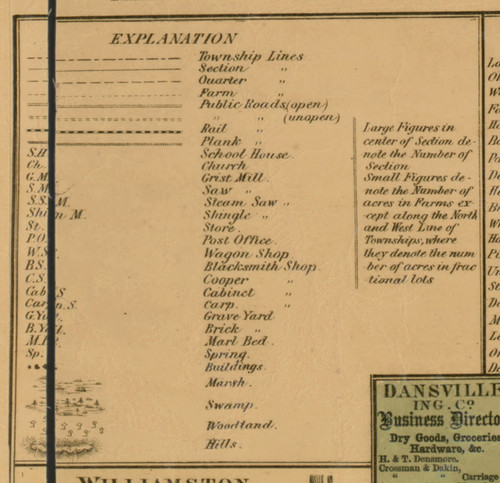 EXPLANATION
Township Lines
Section "
Quarter "
Farm "
Public Roads (open)
" " (unopen)
Rail "
Plank "
S.H School House.
Ch. Church
G.M Grist Mill.
S.M Saw "
S.S. M. Steam Saw "
Shin M. Shingle "
St. Store.
P.O. Post Office.
W.S. Wagon Shop
B.S. Blacksmith Shop.
C.S. Cooper "
Cab S Cabinet "
Carp S. Carp. "
G.Y Grave Yard
B.Y Brick "
M. Marl Bed.
Sp. Spring.
Buildings.
Marsh.
Swamp.
Woodland.
Hills.
Large Figures in
center of Section de-
note the Number of
Section
Small Figures de-
note the Number of
acres in Farms ex
cept along the North
and West Line of
Townships, where
they denote the num
ber of acres in frac
tional lots
DANSVILLE
ING. CO.
Business Directo
Dry Goods, Groceries
Hardware, &c.
H. & T. Densmore.
Crossman & Dakin,
" " Carriage
WILLIAMSTON